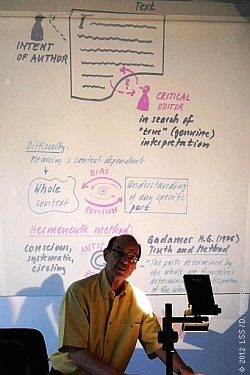 Text
INTENT OF
AUTHOR
?
CRITICAL
EDITOR
in search of
"true" (genuine)
interpretation
Difficulty:
Meaning is context dependent
Whole
context
BIAS
REVISION
Understanding
of any specific
part
Hermeneutic method:
conscious,
systematic,
circling
Gadamer H.G. (1975)
Truth and Method
"The parts determined by
the whole are themselves
of the whole
© 2012 LSS